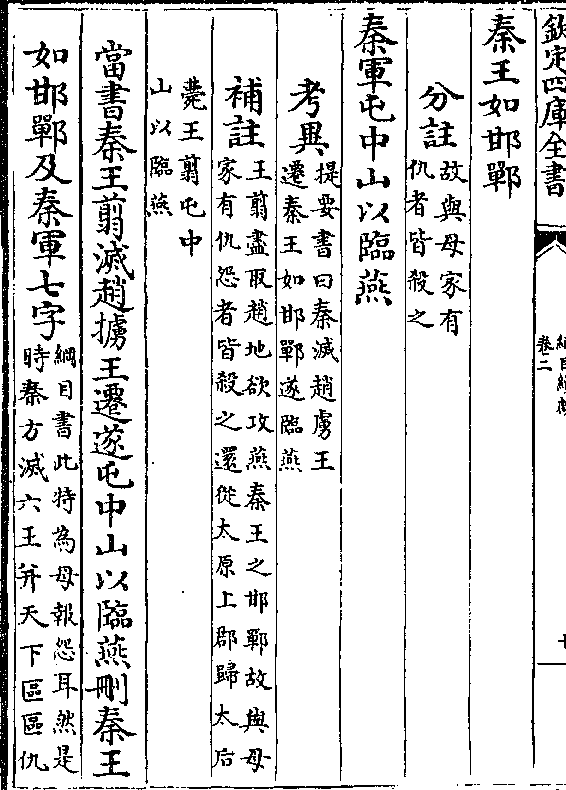 欽定四庫全書
卷二
秦王如邯鄲
分註
故與母家有
仇者皆殺之
秦軍屯中山以臨燕
考異
提要書曰秦滅趙虜王
遷秦王如邯鄲遂臨燕
補註
王翦盡取趙地欲攻燕秦王之邯鄲故與母
家有仇怨者皆殺之還從太原上郡歸太后
薨王翦屯中
山以臨燕
當書秦王翦滅趙擄王遷遂屯中山以臨燕刪秦王
如邯鄲及秦軍七字
綱目書此特為母報怨耳然是
時秦方滅六王并天下區區仇